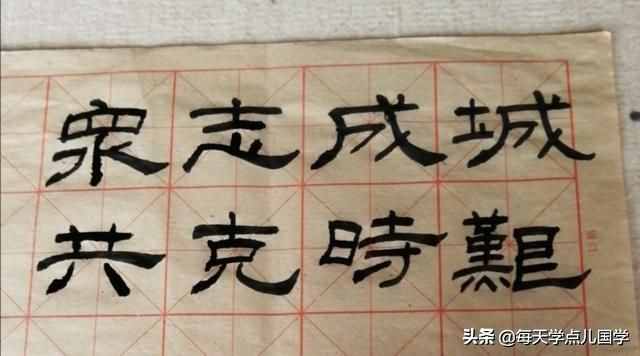 眾志成城
共克時艱
头条 @每天学点儿国学